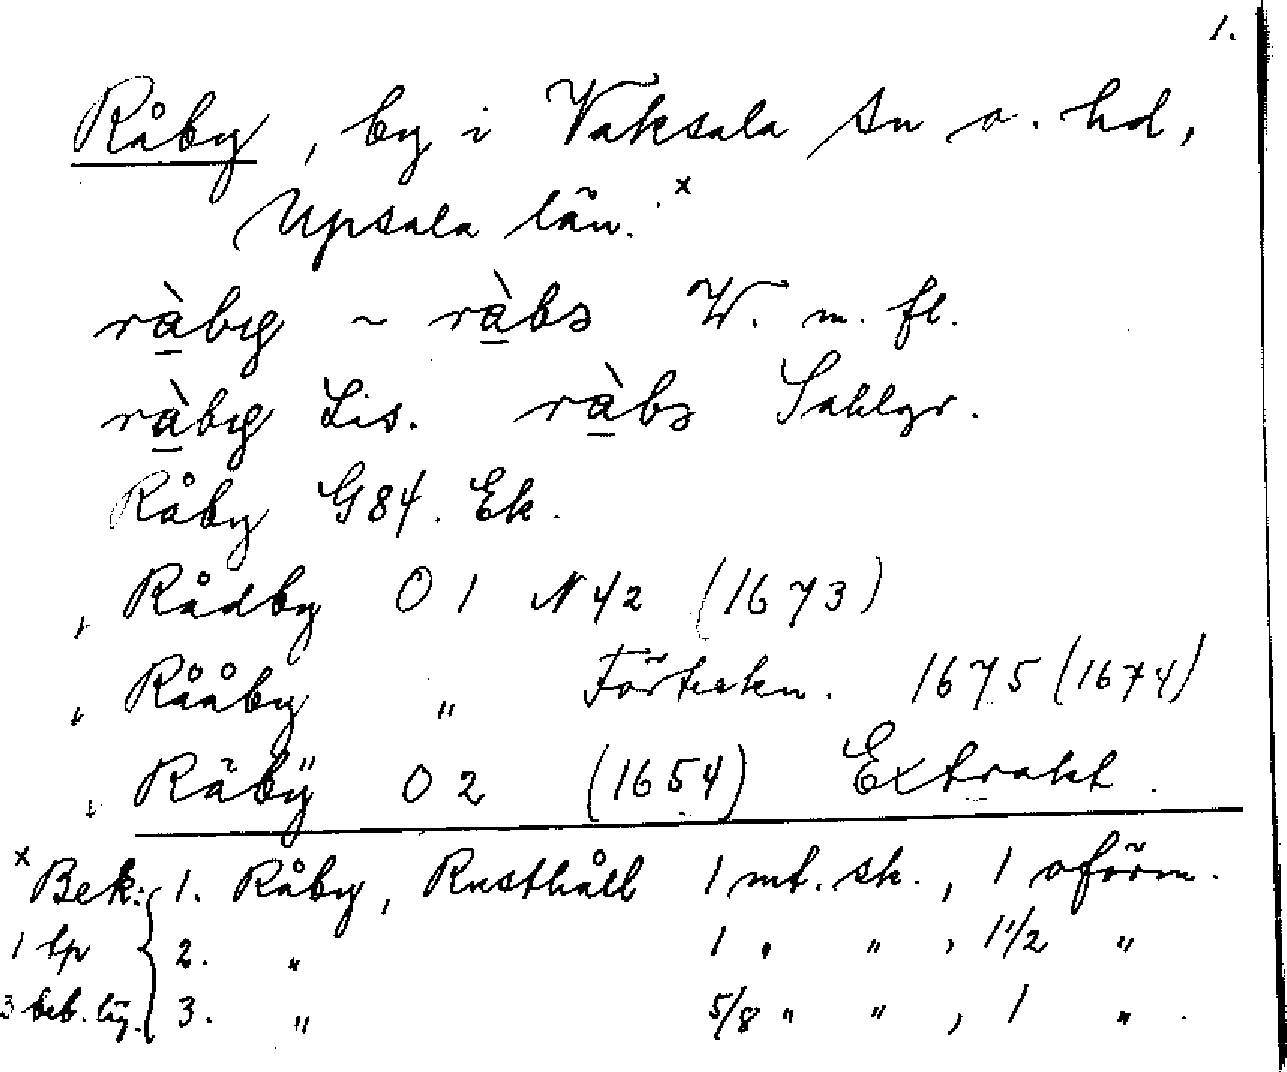 1.
Råby, by i Vaksala sn o. hd,
Upsala län. x
rà̱by ~ rà̱bə W. m. fl.
rà̱by Lis. rà̱bə Sahlgr.
Råby G84. Ek.
, Rådby O 1 N42 (1673)
„ Rååby „ Förteckn. 1675 (1674)
„ Råbÿ O 2 (1654) Extrakt.
x Bek: 1. Råby, Rusthåll 1 mt. sk., 1 oförm.
1 bp 2. „ 1 „ „ , 1 1/2 „
3 beb. läg. 3. „ 5/8 „ „ , 1 „ .